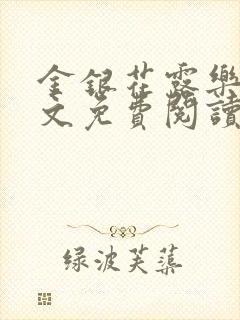 金銀花露樂
文免費閱讀
绿波芙蕖